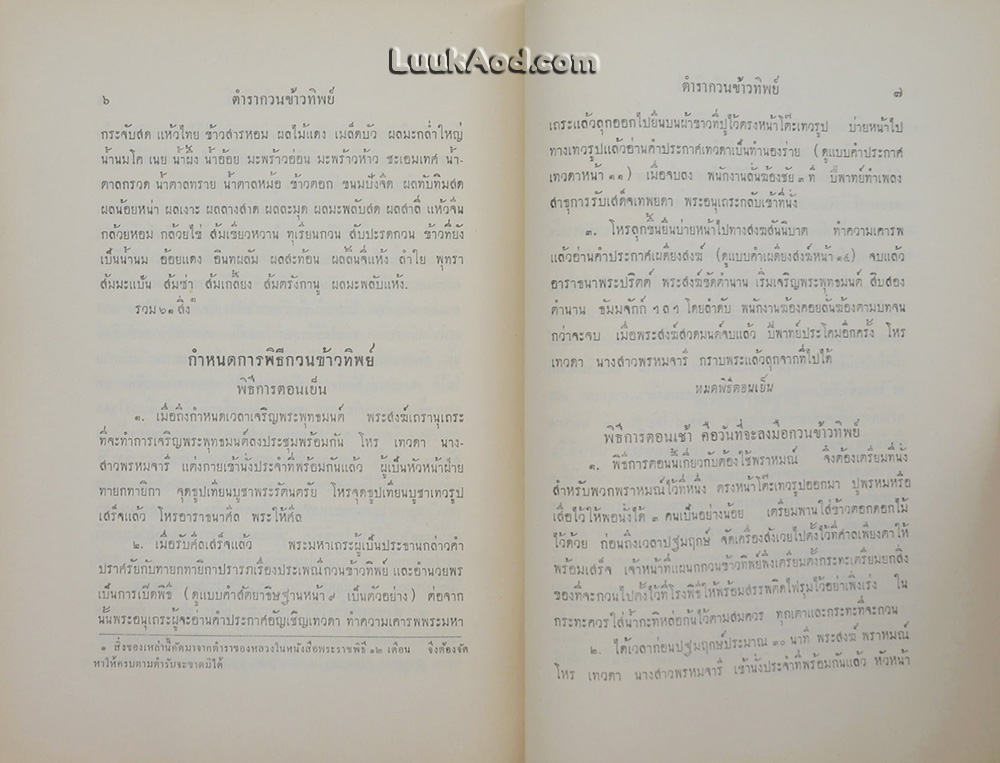 LuukAod.com
๖ ตำรากวนข้าวทิพย์
กระจับสด แห้วไทย ข้าวสารหอม ผลไม้แดง เมล็ดบัว ผลมะกล่ำใหญ่
น้ำนมโค เนย น้ำผึ้ง น้ำอ้อย มะพร้าวอ่อน มะพร้าวห้าว ชะเอมเทศ น้ำ-
ตาลกรวด น้ำตาลทราย น้ำตาลหม้อ ข้าวตอก ขนมปังจืด ผลทับทิมสด
ผลน้อยหน่า ผลเงาะ ผลลางสาด ผลละมุด ผลมะพลับสด ผลสาลี่ แห้วจีน
กล้วยหอม กล้วยไข่ ส้มเขียวหวาน ทุเรียนกวน สับปะรดกวน ข้าวที่ยัง
เป็นน้ำนม อ้อยแดง อินทผลัม ผลสะท้อน ผลลิ้นจี่แห้ง ลำใย พุทรา
ส้มมะแป้น ส้มซ่า ส้มเกลี้ยง ส้มตรังกานู ผลมะพลับแห้ง.
รวม ๖๑ สิ่ง ๑
กำหนดการพิธีกวนข้าวทิพย์
พิธีการตอนเย็น
๑. เมื่อถึงกำหนดเวลาเจริญพระพุทธมนต์ พระสงฆ์เถรานุเถระ
ที่จะทำการเจริญพระพุทธมนต์ลงประชุมพร้อมกัน โหร เทวดา นาง-
สาวพรหมจารี แต่งกายเข้านั่งประจำที่พร้อมกันแล้ว ผู้เป็นหัวหน้าฝ่าย
ทายกทายิกา จุดธูปเทียนบูชาพระรัตนตรัย โหรจุดธูปเทียนบูชาเทวรูป
เสร็จแล้ว โหรอาราธนาศีล พระให้ศีล
๒. เมื่อรับศีลเสร็จแล้ว พระมหาเถระผู้เป็นประธานกล่าวคำ
ปราศรัยกับทายกทายิกาปรารภเรื่องประเพณีกวนข้าวทิพย์ และอำนวยพร
เป็นการเปิดพิธี (ดูแบบคำสัตยาธิษฐานหน้า ๙ เป็นตัวอย่าง) ต่อจาก
นั้นพระอนุเถระผู้จะอ่านคำประกาศอัญเชิญเทวดา ทำความเคารพพระมหา
๑ สิ่งของเหล่านี้คัดมาจากตำราของหลวงในหนังสือพระราชพิธี ๑๒ เดือน จึงต้องจัด
หาให้ครบตามตำรับจะขาดมิได้
ตำรากวนข้าวทิพย์ ๗
เถระแล้วลุกออกไปยืนบนผ้าขาวที่ปูไว้ตรงหน้าโต๊ะเทวรูป บ่ายหน้าไป
ทางเทวรูปแล้วอ่านคำประกาศเทวดาเป็นทำนองร่าย (ดูแบบคำประกาศ
เทวดาหน้า ๑๑) เมื่อจบลง พนักงานลั่นฆ้องชัย ๓ ที ปี่พาทย์ทำเพลง
สาธุการรับเสด็จเทพยดา พระอนุเถระกลับเข้าที่นั่ง
๓. โหรลุกขึ้นยืนบ่ายหน้าไปทางสงฆสันนิบาต ทำความเคารพ
แล้วอ่านคำประกาศเผดียงสงฆ์ (ดูแบบคำเผดียงสงฆ์หน้า ๑๕) จบแล้ว
อาราธนาพระปริตต์ พระสงฆ์ขัดตำนาน เริ่มเจริญพระพุทธมนต์ สิบสอง
ตำนาน ธัมมจักก์ ฯลฯ โดยลำดับ พนักงานฆ้องคอยลั่นฆ้องตามบทจน
กว่าจะจบ เมื่อพระสงฆ์สวดมนต์จบแล้ว ปี่พาทย์ประโคมอีกครั้ง โหร
เทวดา นางสาวพรหมจารี กราบพระแล้วลุกจากที่ไปได้
หมดพิธีตอนเย็น
พิธีการตอนเช้า คือวันที่จะลงมือกวนข้าวทิพย์
๑. พิธีการตอนนี้เกี่ยวกับต้องใช้พราหมณ์ จึงต้องเตรียมที่นั่ง
สำหรับพวกพราหมณ์ไว้ที่หนึ่ง ตรงหน้าโต๊ะเทวรูปออกมา ปูพรหมหรือ
เสื่อไว้ให้พอนั่งได้ ๓ คนเป็นอย่างน้อย เตรียมพานใส่ข้าวตอกดอกไม้
ไว้ด้วย ก่อนถึงเวลาปฐมฤกษ์ จัดเครื่องสังเวยไปตั้งไว้ที่ศาลเพียงตาให้
พร้อมเสร็จ เจ้าหน้าที่แผนกกวนข้าวทิพย์พึงเตรียมตั้งกระทะเตรียมยกสิ่ง
ของที่จะกวนไปตั้งไว้ที่โรงพิธีให้พร้อมสรรพติดไฟรุมไว้อย่าเพิ่งเร่ง ใน
กระทะควรใส่น้ำกะทิหล่อก้นไว้ตามสมควร ทุกเตาและกระทะที่จะกวน
๒. ได้เวลาก่อนปฐมฤกษ์ประมาณ ๓๐ นาที พระสงฆ์ พราหมณ์
โหร เทวดา นางสาวพรหมจารี เข้านั่งประจำที่พร้อมกันแล้ว หัวหน้า